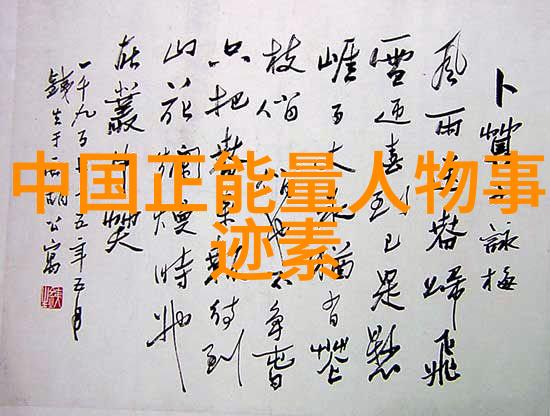 中国正能量人物事
迹素
卜算子詠梅
風雨送春歸飛
雪迎春到已是懸
崖百丈冰猶有花
枝俏 也不爭春
只把春來報待到
山花爛熳時她
在叢中笑
一千九百七十五年五月